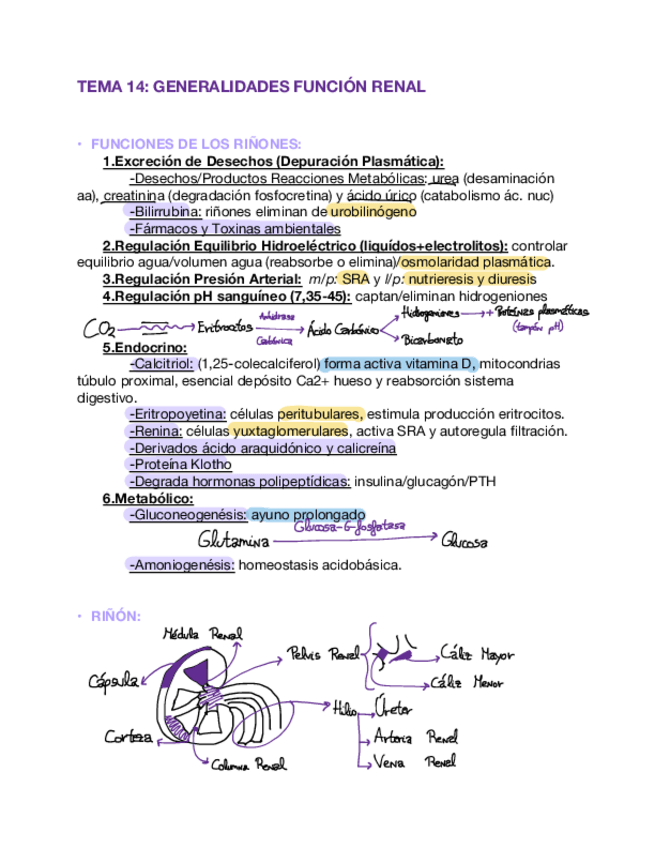 TEMA 14: GENERALIDADES FUNCIÓN RENAL
• FUNCIONES DE LOS RIÑONES:
1.Excreción de Desechos (Depuración Plasmática):
-Desechos/Productos Reacciones Metabólicas: urea (desaminación
aa), creatinina (degradación fosfocretina) y ácido úrico (catabolismo ác. nuc)
-Bilirrubina: riñones eliminan de urobilinógeno
-Fármacos y Toxinas ambientales
2.Regulación Equilibrio Hidroeléctrico (liquídos+electrolitos): controlar
equilibrio agua/volumen agua (reabsorbe o elimina)/osmolaridad plasmática.
3.Regulación Presión Arterial: m/p: SRA y l/p: nutrieresis y diuresis
4.Regulación pH sanguíneo (7,35-45): captan/eliminan hidrogeniones
CO2 Eritrocitos Anhidrasa Carbónica Ácido Carbónico
Hidrogeniones + Proteínas plasmáticas
(tampón pH)
Bicarbonato
5.Endocrino:
-Calcitriol: (1,25-colecalciferol) forma activa vitamina D, mitocondrias
túbulo proximal, esencial depósito Ca2+ hueso y reabsorción sistema
digestivo.
-Eritropoyetina: células peritubulares, estimula producción eritrocitos.
-Renina: células yuxtaglomerulares, activa SRA y autoregula filtración.
-Derivados ácido araquidónico y calicreína
-Proteína Klotho
-Degrada hormonas polipeptídicas: insulina/glucagón/PTH
6.Metabólico:
-Gluconeogenésis: ayuno prolongado
Glucosa-6-fosfatasa
Glutamina Glucosa
-Amoniogenésis: homeostasis acidobásica.
• RIÑÓN:
Médula Renal
Pelvis Renal
Cáliz Mayor
Cáliz Menor
Cápsula
Hilio
Úreter
Corteza
Arteria Renal
Columna Renal
Vena Renal